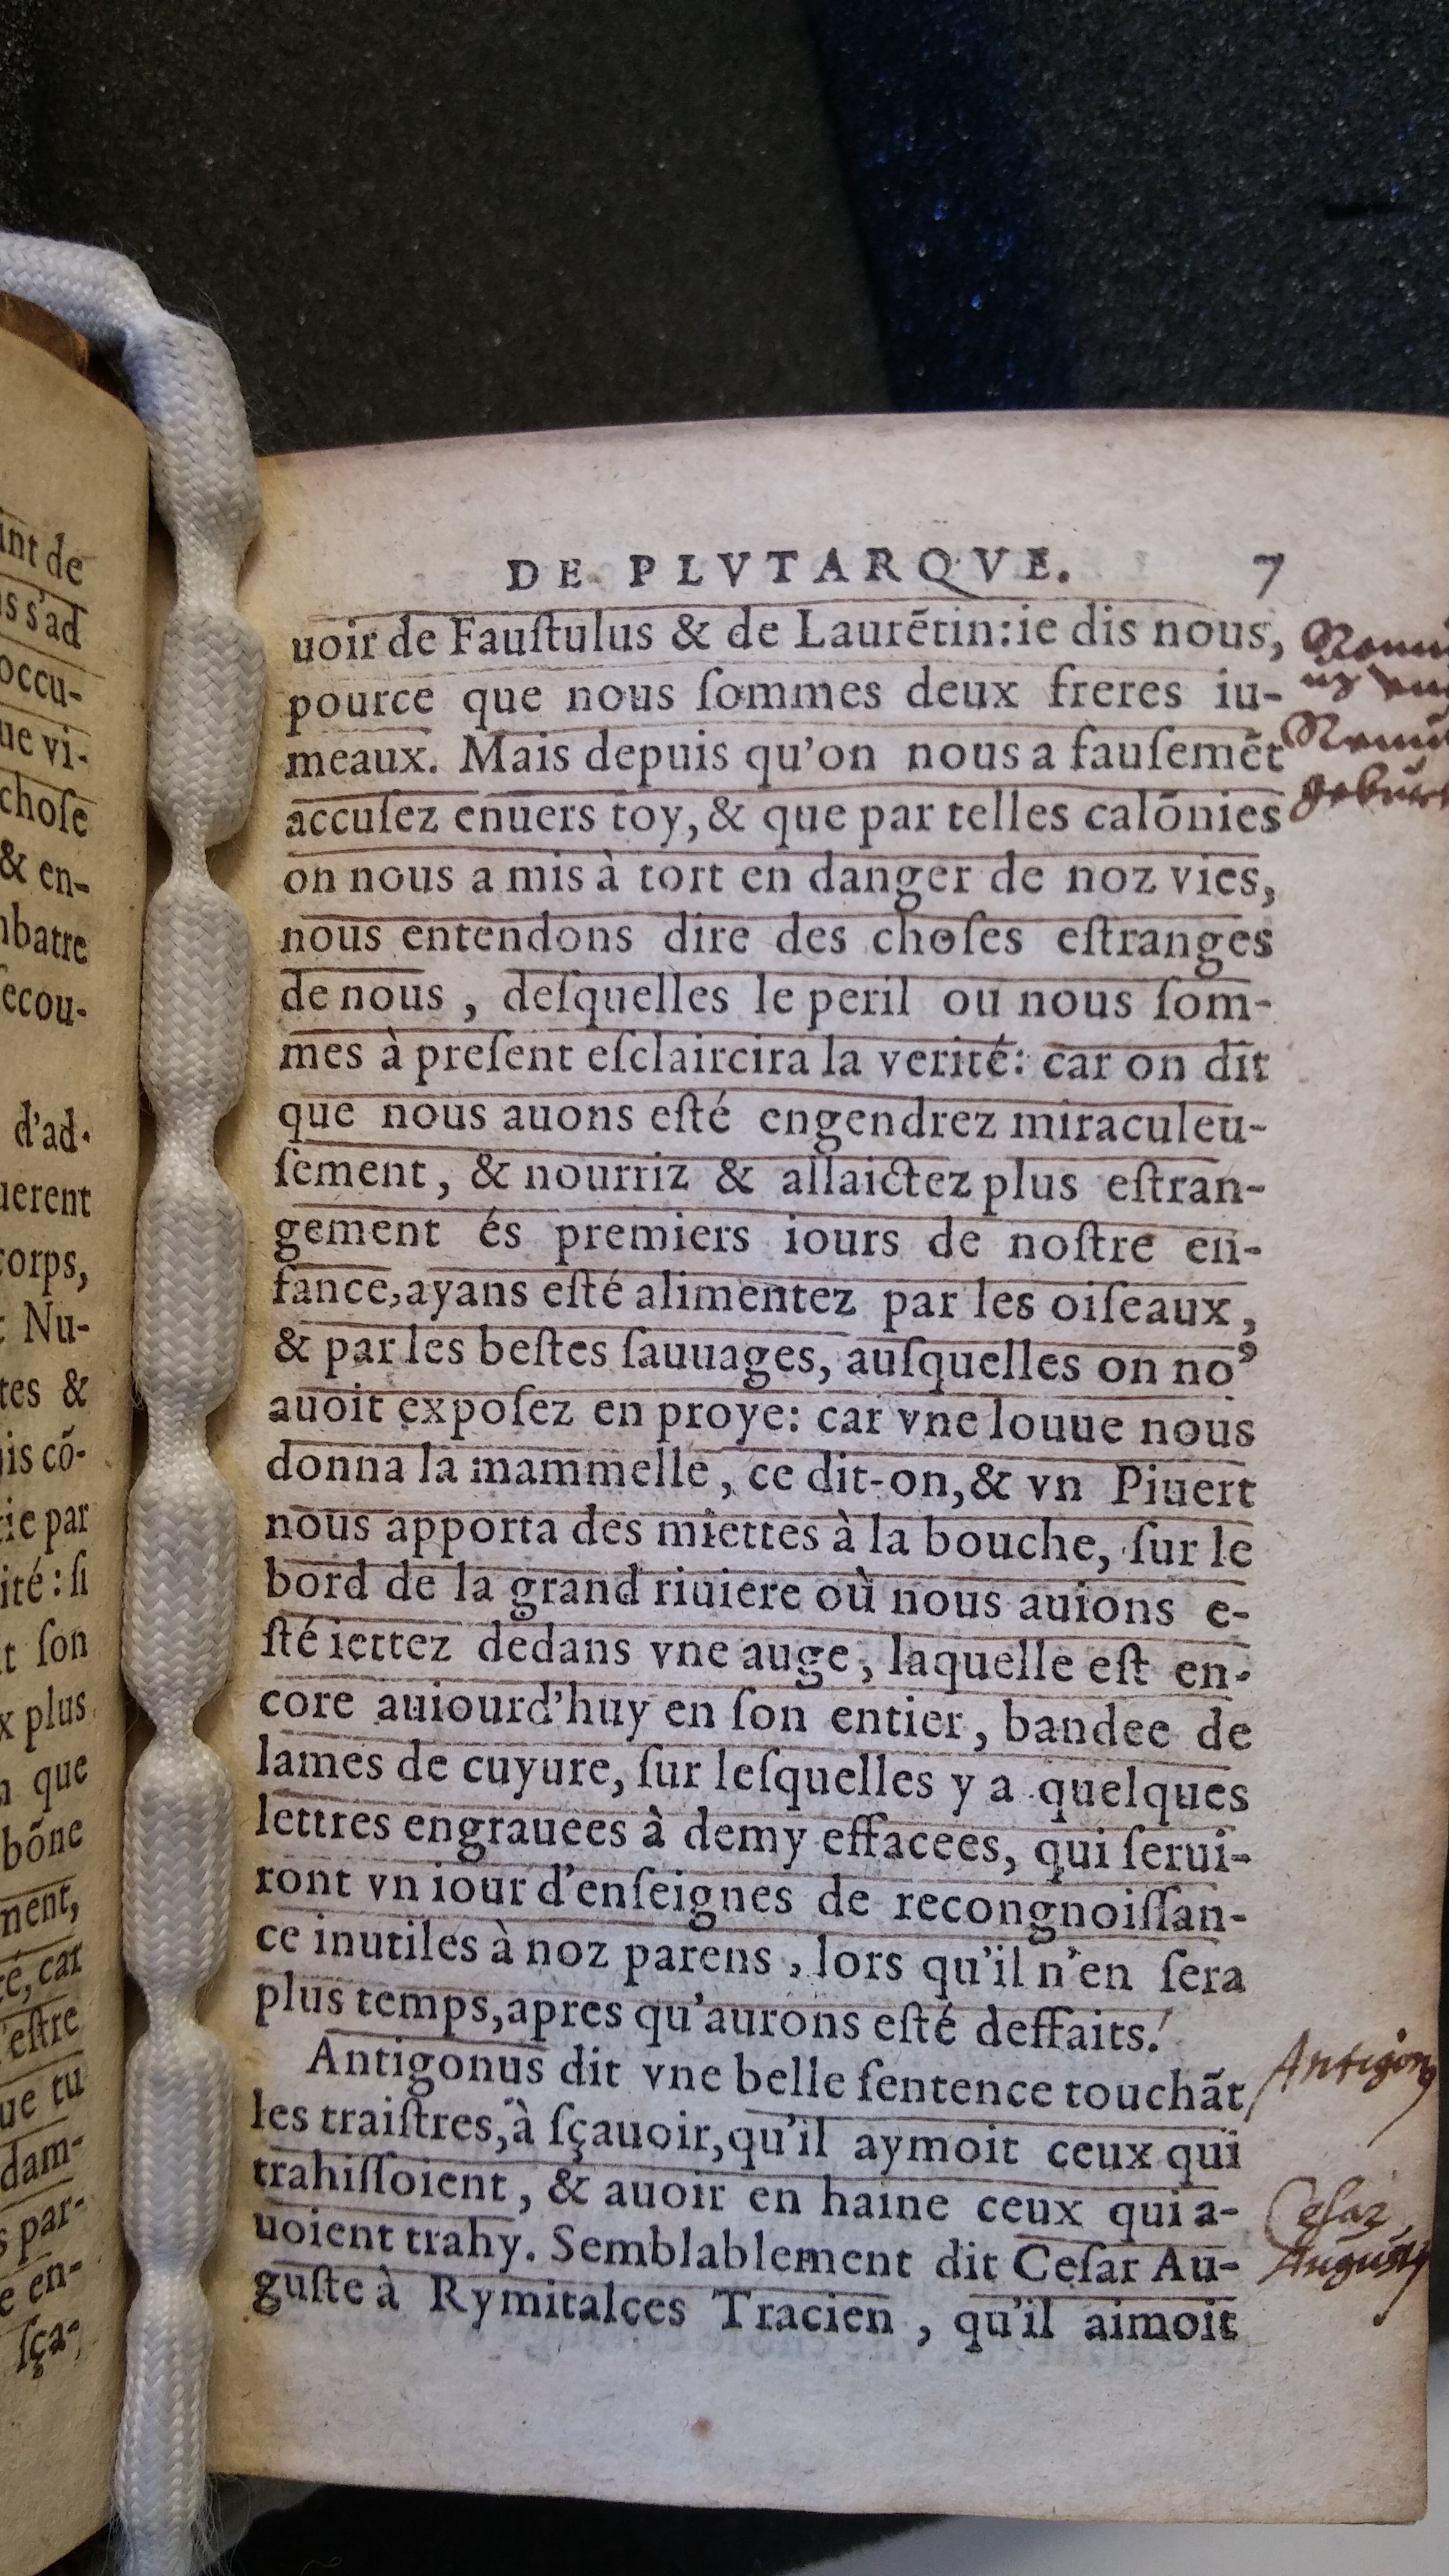 int de
s s'ad
occu-
ue vi-
choſe
& en-
batre
ecou-
d'ad-
uerent
corps,
Nu-
tes &
is cō-
ie par
ité: ſi
t ſon
x plus
que
bōne
ment,
car
eſtre
ue tu
dam-
par-
en-
ſça-
DE PLVTARQVE. 7
uoir de Fauſtulus & de Laurētin: ie dis nous,
pource que nous ſommes deux freres iu-
meaux. Mais depuis qu'on nous a fauſemēt
accuſez enuers toy, & que par telles calōnies
on nous a mis à tort en danger de noz vies,
nous entendons dire des choſes eſtranges
de nous, deſquelles le peril ou nous ſom-
mes à preſent eſclaircira la verité: car on dit
que nous auons eſté engendrez miraculeu-
ſement, & nourriz & allaictez plus eſtran-
gement és premiers iours de noſtre en-
fance, ayans eſté alimentez par les oiſeaux,
& par les beſtes ſauuages, auſquelles on noꝰ
auoit expoſez en proye: car vne louue nous
donna la mammelle, ce dit-on, & vn Piuert
nous apporta des miettes à la bouche, ſur le
bord de la grand riuiere où nous auions e-
ſté iettez dedans vne auge, laquelle eſt en-
core auiourd'huy en ſon entier, bandee de
lames de cuyure, ſur leſquelles y a quelques
lettres engrauees à demy effacees, qui ſerui-
ront vn iour d'enſeignes de recongnoiſſan-
ce inutiles à noz parens, lors qu'il n'en ſera
plus temps, apres qu'aurons eſté deffaits.
Antigonus dit vne belle ſentence touchāt
les traiſtres, à ſçauoir, qu'il aymoit ceux qui
trahiſſoient, & auoir en haine ceux qui a-
uoient trahy. Semblablement dit Ceſar Au-
guſte à Rymitalces Tracien, qu'il aimoit
Antigon
Ceſar